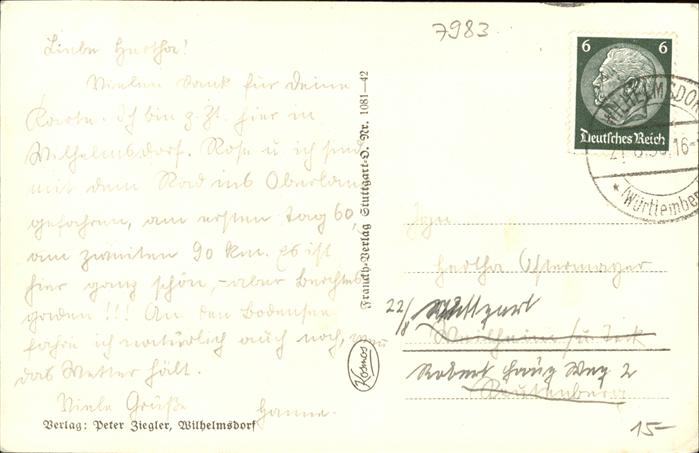 7983
Liebe Hertha!
Vielen Dank für Deine
Karte. Ich bin z. Zt. hier in
Wilhelmsdorf. Rose u ich sind
mit dem Rad ins Oberland
gefahren, am ersten Tag 60,
am zweiten 90 km. Es ist
hier ganz schön, – aber Berchtes-
gaden !!! An den Bodensee
fahre ich natürlich auch noch, wenn
das Wetter hält.
Viele Grüße Hanne.
Verlag: Peter Ziegler, Wilhelmsdorf
Franckh-Verlag Stuttgart-O. Nr. 1081—42
Kosmos
6 6
Deutsches Reich
WILHELMSDORF
(Württemberg
Hertha Ostermayer
22/8 Stuttgart
/u. Teck
Robert Haug Weg 2
15–